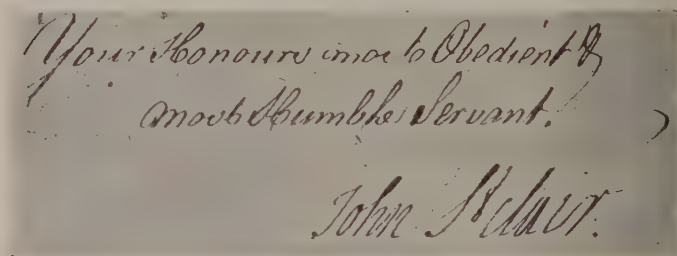 Your Honours most Obedient &
most Humble Servant.
John St Clair.